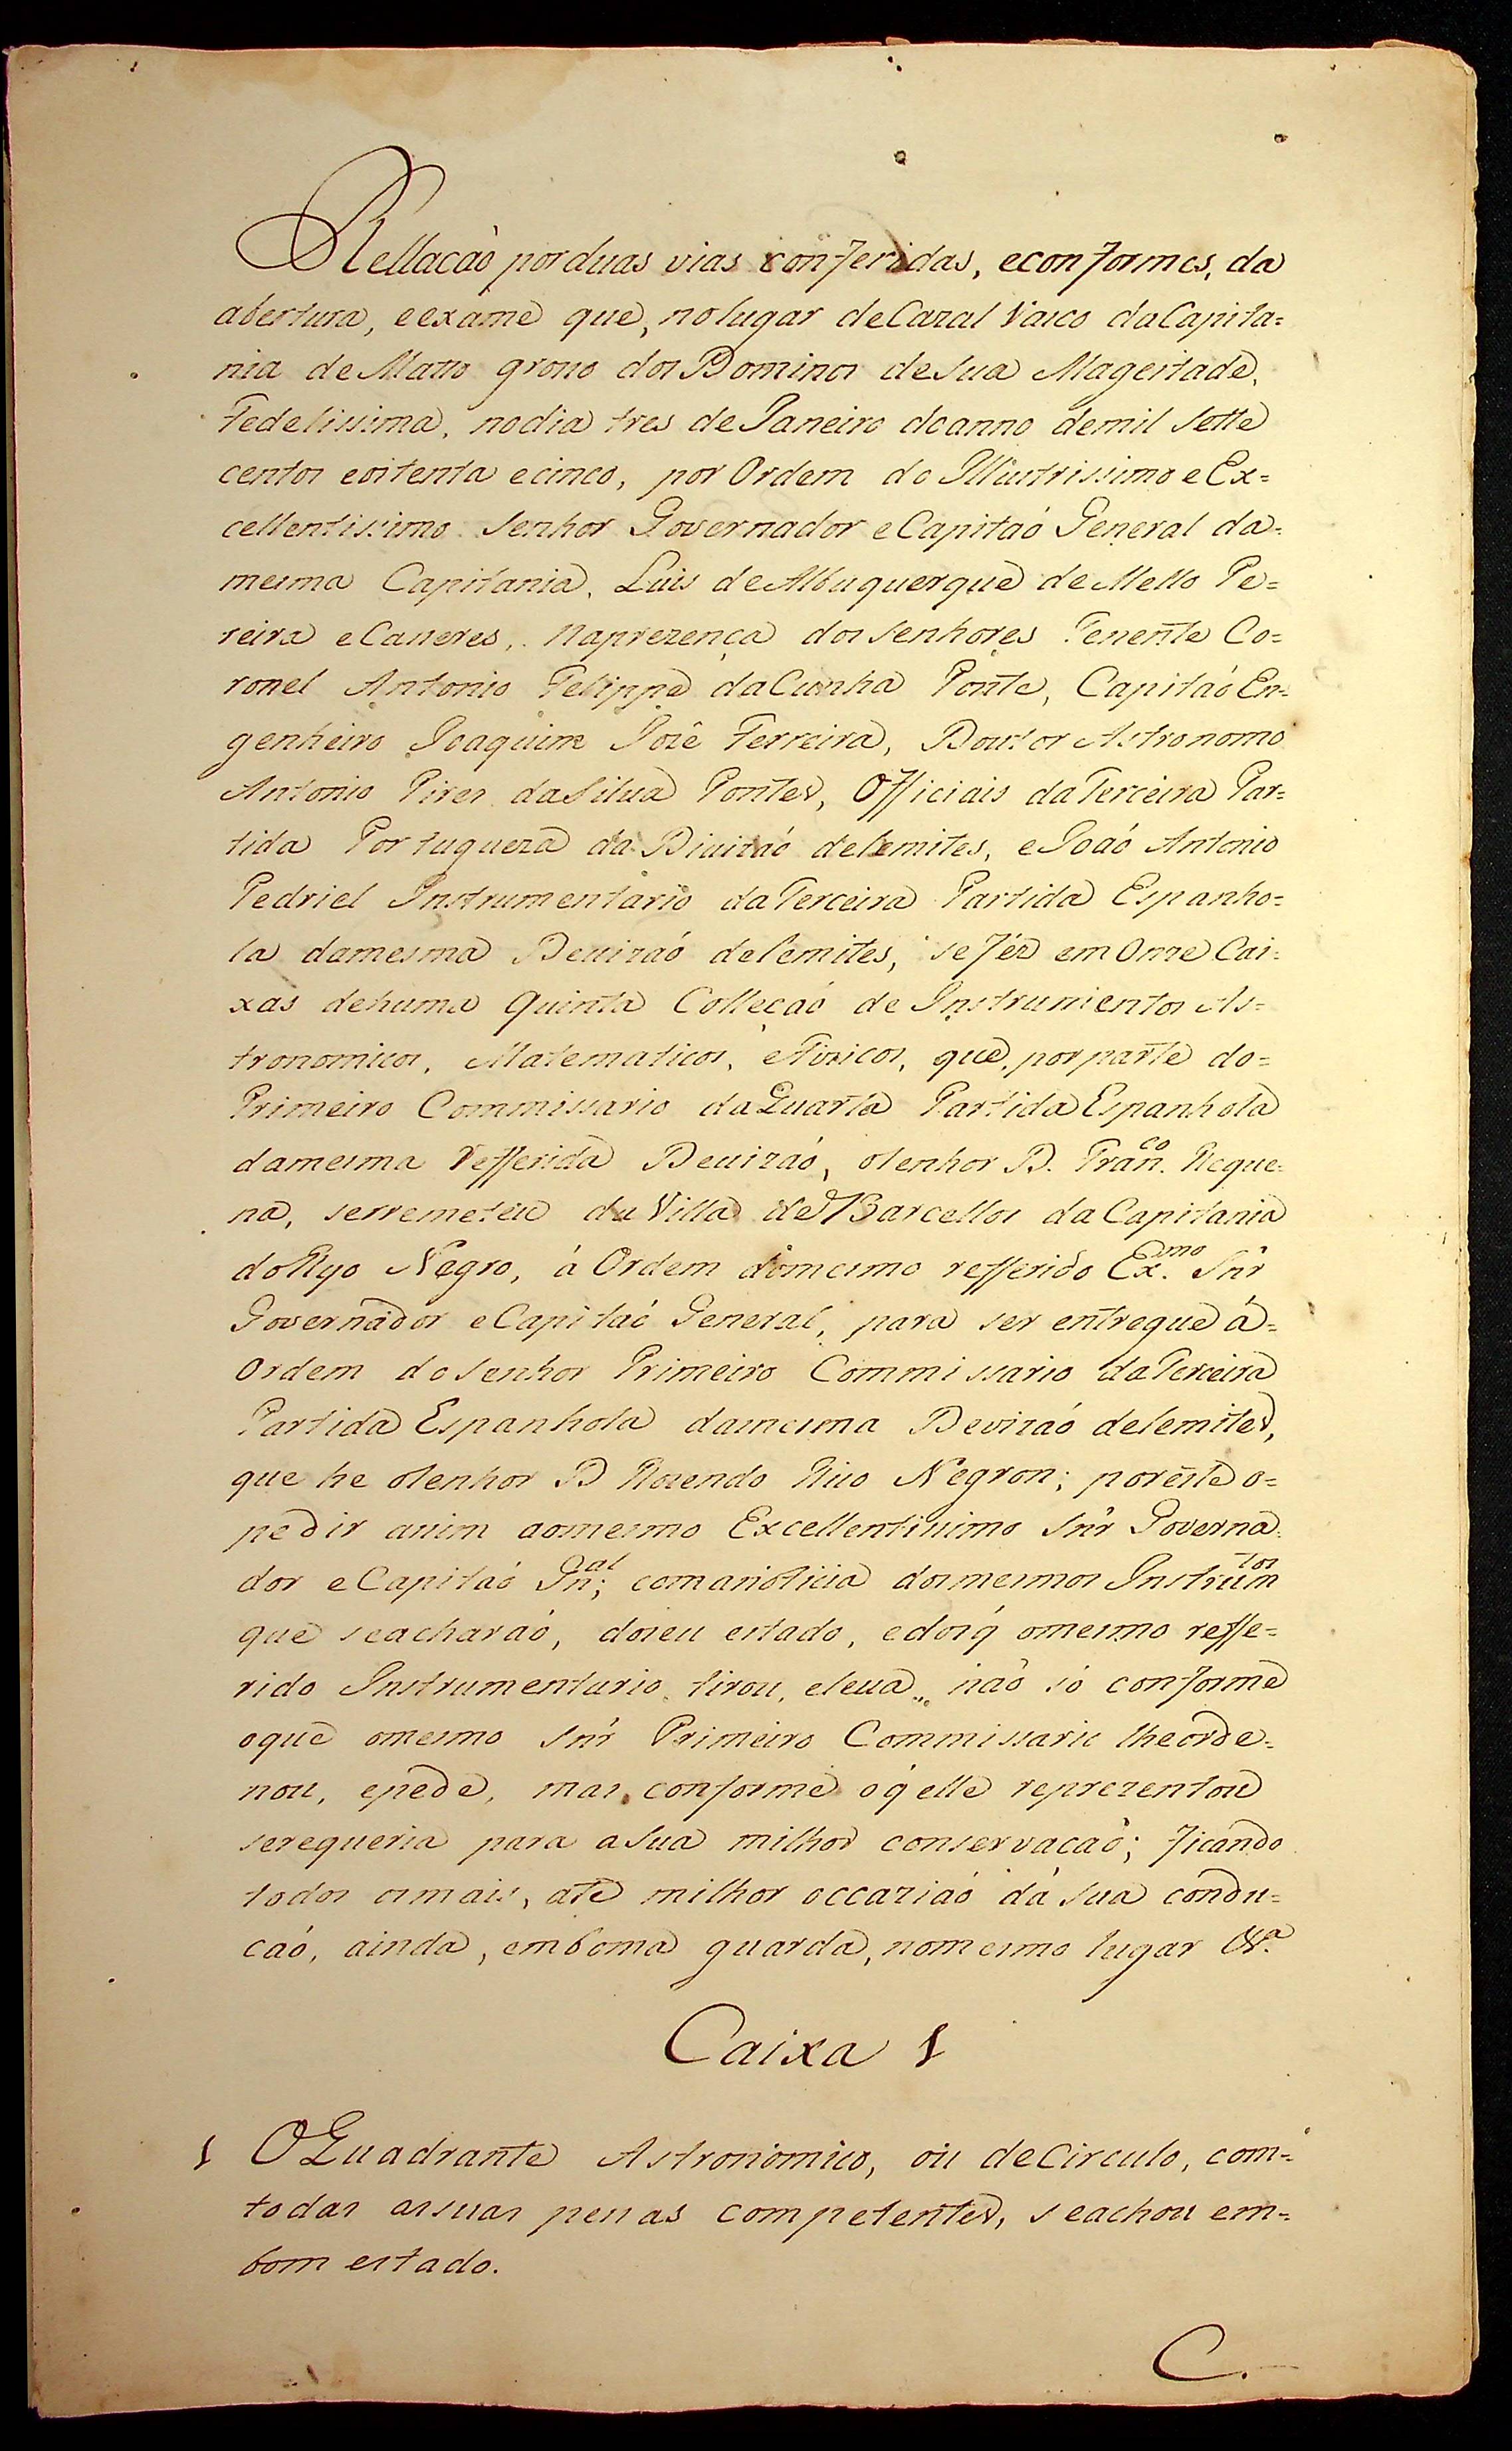 Rellacaó por duas vias conferidas, econformes, da
abertura, eexame que, nolugar deCazal Vasco daCapita=
nia de Matto grosso dos Dominos desua Magestade,
Fedelissima, nodia tres de Janeiro doanno demil sette
centos eoitenta ecinco, por Ordem do Illustrissimo e Ex=
cellentissimo Senhor Governador eCapitaó General da=
mesma Capitania, Luis deAlbuquerque de Mello Pe=
reira eCaseres, naprezença dos senhores Tenente Co=
ronel Antonio Felippe daCunha Ponte, Capitaó En=
genheiro Joaquim Jozê Ferreira, Doutor Astronomo
Antonio Pires daSilua Pontes, Officiais daTerceira Par=
tida Portugueza da Diuizaó delemites, eJoaó Antonio
Pedriel Instrumentario daTerceira Partida Espanho=
la damesma Deuizaó delemites, sefêz emOnze Cai=
xas dehuma Quinta Colleçaó de Instrumentos As=
tronomicos, Matematicos, eFizicos, que, porparte do=
Primeiro Commissario daQuarta Partida Espanhola
damesma refferida Deuizaó, osenhor D. Fran.co Reque=
na, serremeteu da Villa de Barcellos da Capitania
doRyo Negro, á Ordem domesmo refferido Ex.mo Snr
Governador eCapitaó General, para ser entregue á=
Ordem dosenhor Primeiro Commissario daTerceira
Partida Espanhola damesma Devizaó delemites,
que he osenhor D Rozendo Rico Negron; poreste o=
pedir assim aomesmo Excellentissimo Snr Governa=
dor eCapitaó Gn.al; comanoticia dosmesmos Instrum.tos
que seacharaó, doseu estado, edosq̃ omesmo reffe=
rido Instrumentario, tirou, eleua,, naõ só conforme
oque omesmo Snr Primeiro Commissario lheorde=
nou, epede, mas, conforme oq̃ elle reprezentou
serequeria para asua milhor conservacaõ; ficando
todos osmais, até milhor occaziaó dá sua condu=
caó, ainda, emboma guarda, nomesmo lugar &.ª
Caixa 1
1 OQuadrante Astronomico, ou deCirculo, com=
todas assuas pessas competentes, seachou em=
bom estado.
C.